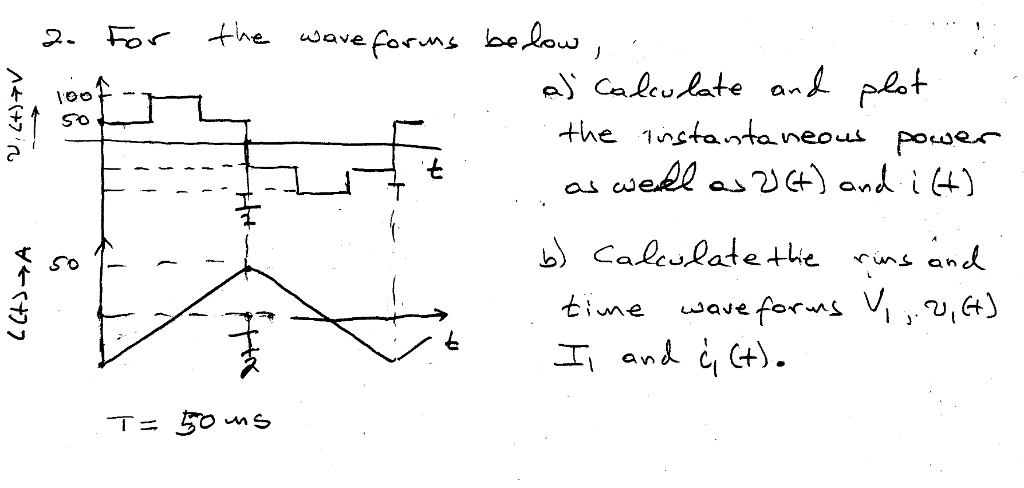 2. For the waveforms below,
a) Calculate and plot
the instantaneous power
as well as v(t) and i(t)
b) Calculate the rms and
time waveforms V₁, v₁(t)
I₁ and i₁(t).
v(t)→V
100
50
t
T/2
T
i(t)→A
50
t
T/2
T = 50 ms